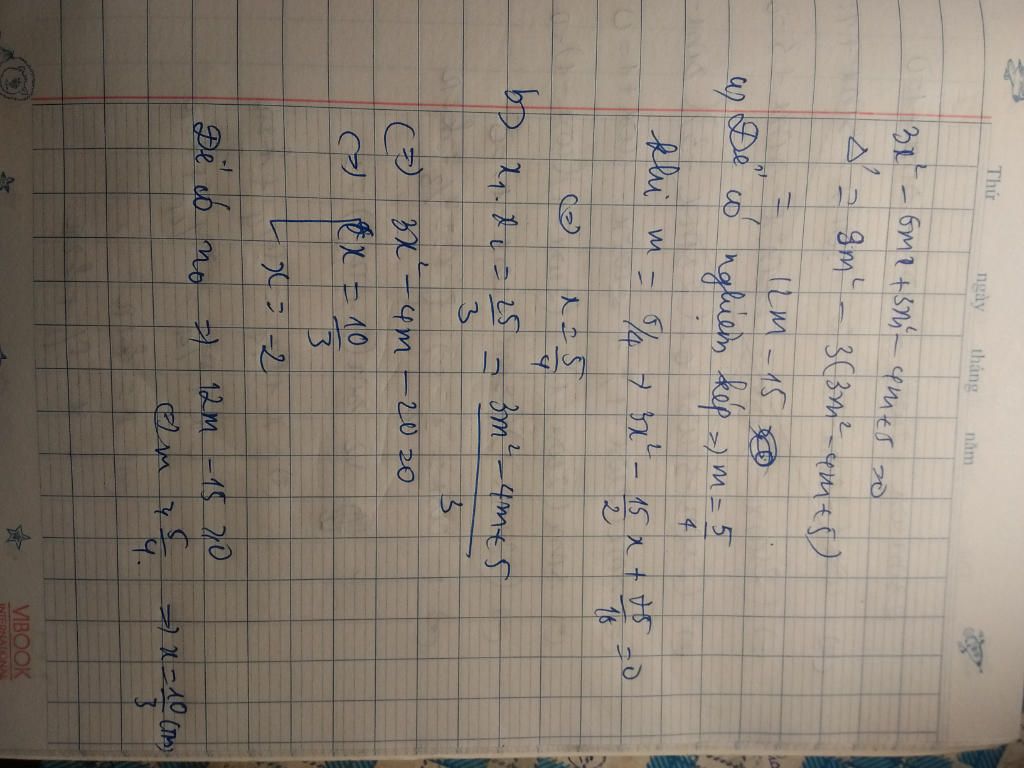 Thứ ngày tháng năm
3x² - 6mx + 3m² - 4m + 5 = 0
Δ' = 9m² - 3(3m² - 4m + 5)
= 12m - 15
a) Để có nghiệm kép => m = 5/4
khi m = 5/4 → 3x² - 15/2 x + 75/16 = 0
(=) x = 5/4
b) x₁.x₂ = 25/3 = 3m² - 4m + 5 / 3
(=) 3x² - 4m - 20 = 0
(=) x = 10/3
x = -2
Để có n₀ => 12m - 15 ≥ 0
(=) m ≥ 5/4. => x = 10/3 (tm)
VBOOK